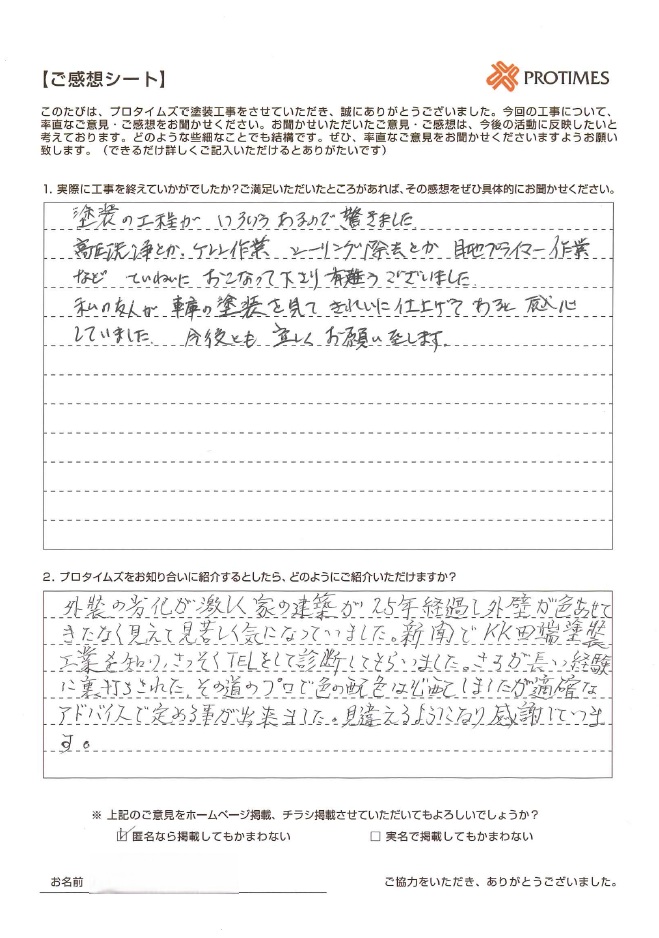 【ご感想シート】
PROTIMES
このたびは、プロタイムズで塗装工事をさせていただき、誠にありがとうございました。今回の工事について、
率直なご意見・ご感想をお聞かせください。お聞かせいただいたご意見・ご感想は、今後の活動に反映したいと
考えております。どのような些細なことでも結構です。ぜひ、率直なご意見をお聞かせくださいますようお願い
致します。（できるだけ詳しくご記入いただけるとありがたいです）
1. 実際に工事を終えていかがでしたか？ご満足いただいたところがあれば、その感想をぜひ具体的にお聞かせください。
塗装の工程が いろいろあるので驚きました
高圧洗浄とか、ケレン作業 シーリング除去とか 目地プライマー作業
など ていねいに おこなって下さり 有難うございました
私の友人が 車庫の塗装を見て きれいに仕上げてあると 感心
していました. 今後とも 宜しくお願い致します.
2. プロタイムズをお知り合いに紹介するとしたら、どのようにご紹介いただけますか？
外装の劣化が激しく家の建築が25年経過し外壁が色あせて
きたなく見えて見苦しく気になっていました。新聞でKK田端塗装
工業を知り、さっそくTELをして診断してもらいました。さすが長い経験
に裏打ちされた、その道のプロで色の配色は心配しましたが適確な
アドバイスで定める事が出来ました。見違えるようになり感謝していま
す。
※ 上記のご意見をホームページ掲載、チラシ掲載させていただいてもよろしいでしょうか？
☑ 匿名なら掲載してもかまわない □ 実名で掲載してもかまわない
お名前 ご協力をいただき、ありがとうございました。